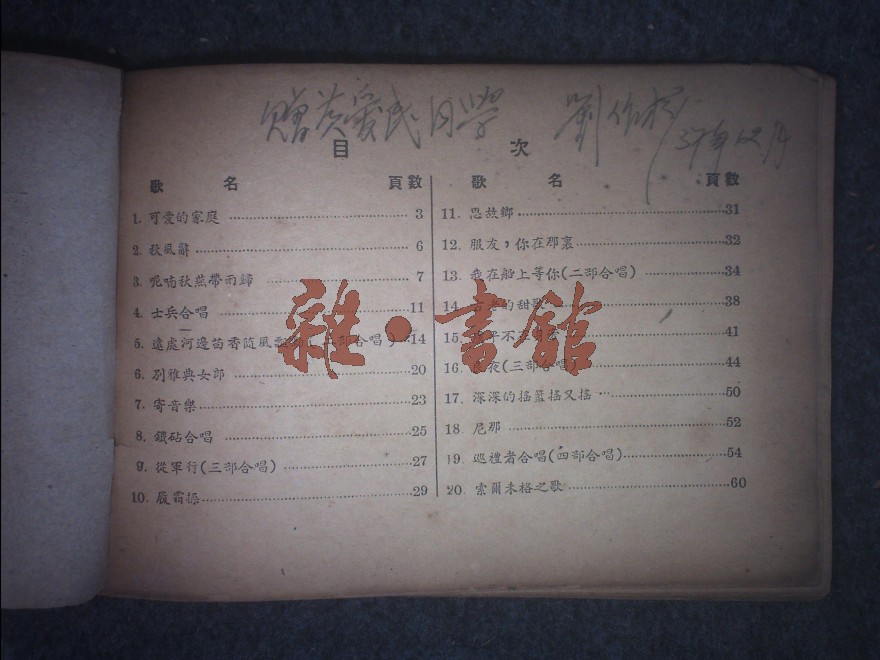 贈黄愛民同學 劉作
37年12月
目 次
歌 名 頁數
1. 可愛的家庭 3
2. 秋風辭 6
3. 呢喃秋燕帶雨歸 7
4. 士兵合唱 11
5. 遠處河邊苗香隨風飄 部合唱) 14
6. 別雅典女郎 20
7. 寄音樂 23
8. 鐵砧合唱 25
9. 從軍行(三部合唱) 27
10. 履霜操 29
歌 名 頁數
11. 思故鄉 31
12. 朋友,你在那裏 32
13. 我在船上等你(二部合唱) 34
14. 的甜歌 38
15. 子不 41
16. 夜(三部合唱) 44
17. 深深的搖籃搖又搖 50
18. 尼那 52
19. 巡禮者合唱(四部合唱) 54
20. 索爾未格之歌 60
雜·書館